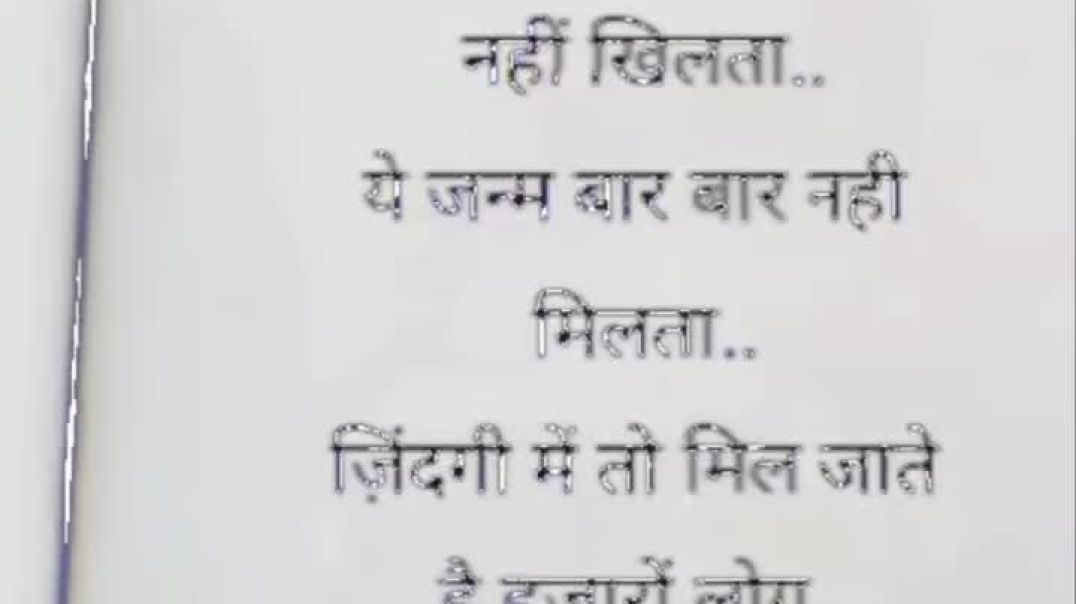 नहीं खिलता..
ये जन्म बार बार नही
मिलता..
ज़िंदगी में तो मिल जाते
है हजारों लोग